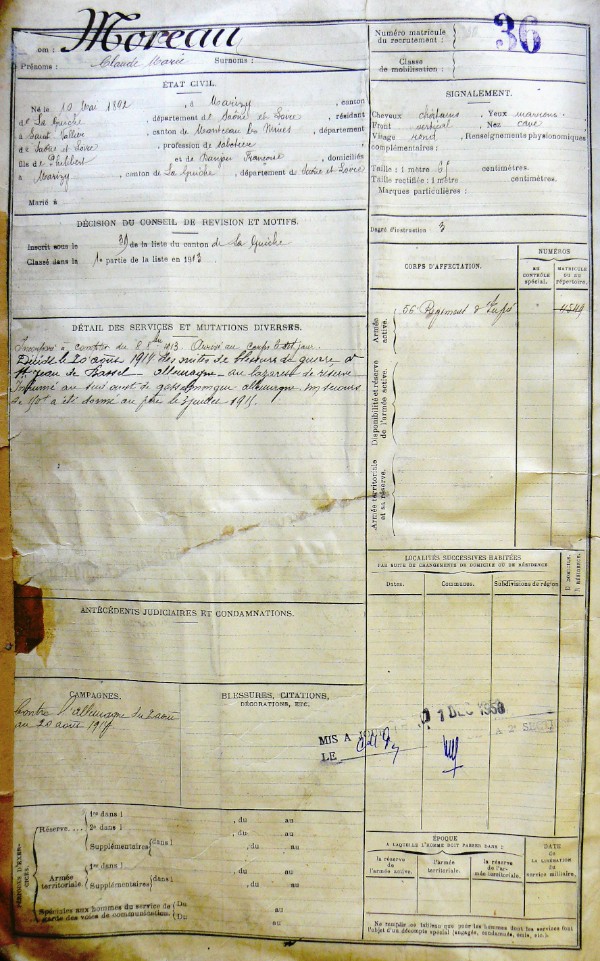 Nom : Moreau
Prénoms : Claude Marie Surnoms :
ÉTAT CIVIL.
Né le 10 Mai 1892, à Marizy, canton
de La Guiche, département de Saône et Loire, résidant
à Saint Vallier, canton de Montceau les Mines, département
de Saône et Loire, profession de sabotier
fils de Philibert et de Françoise, domiciliés
à Marizy, canton de La Guiche, département de Saône et Loire
Marié à
DÉCISION DU CONSEIL DE REVISION ET MOTIFS.
Inscrit sous le n° 39 de la liste du canton de La Guiche
Classé dans la 1e partie de la liste en 1913
DÉTAIL DES SERVICES ET MUTATIONS DIVERSES.
Incorporé à compter du 8 8bre 1913. Arrivé au corps le dit jour.
Décédé le 20 août 1914 des suites de blessures de guerre à
St Jean de Bassel allemagne au lazaret de réserve
Inhumé au allemagne. Un secours
de 150f a été donné au père le 3 juillet 1915.
ANTÉCÉDENTS JUDICIAIRES ET CONDAMNATIONS.
CAMPAGNES.
Contre l'allemagne du 2 août
au 20 août 1914
BLESSURES, CITATIONS,
DÉCORATIONS, ETC.
PÉRIODES D'EXERCICES.
Réserve
1re dans l , du au
2e dans l , du au
Supplémentaires dans l , du au
Armée territoriale
1re dans l , du au
Supplémentaires dans l , du au
Spéciales aux hommes du service de garde des voies de communication.
Du au
Du au
Numéro matricule du recrutement : 36
Classe de mobilisation :
SIGNALEMENT.
Cheveux châtains, Yeux marrons
Front vertical, Nez cave
Visage rond, Renseignements physionomiques
complémentaires :
Taille : 1 mètre 61 centimètres.
Taille rectifiée : 1 mètre centimètres.
Marques particulières :
Degré d'instruction 3
CORPS D'AFFECTATION.
NUMÉROS
AU CONTRÔLE spécial.
MATRICULE OU DU répertoire.
Armée active.
56 Régiment d'Infrie 4549
Disponibilité et réserve de l'armée active.
Armée territoriale et sa réserve.
LOCALITÉS SUCCESSIVES HABITÉES
PAR SUITE DE CHANGEMENTS DE DOMICILE OU DE RÉSIDENCE
Dates. Communes. Subdivisions de région
D. DOMICILE.
R. RÉSIDENCE.
MIS A JOUR
LE
1 DEC 1950
ÉPOQUE
A LAQUELLE L'HOMME DOIT PASSER DANS :
la réserve de l'armée active.
l'armée territoriale.
la réserve de l'armée territoriale.
DATE
DE LA LIBÉRATION DU service militaire.
Ne remplir ce tableau que pour les hommes dont les services font
l'objet d'un décompte spécial (engagés, condamnés, omis, etc.).